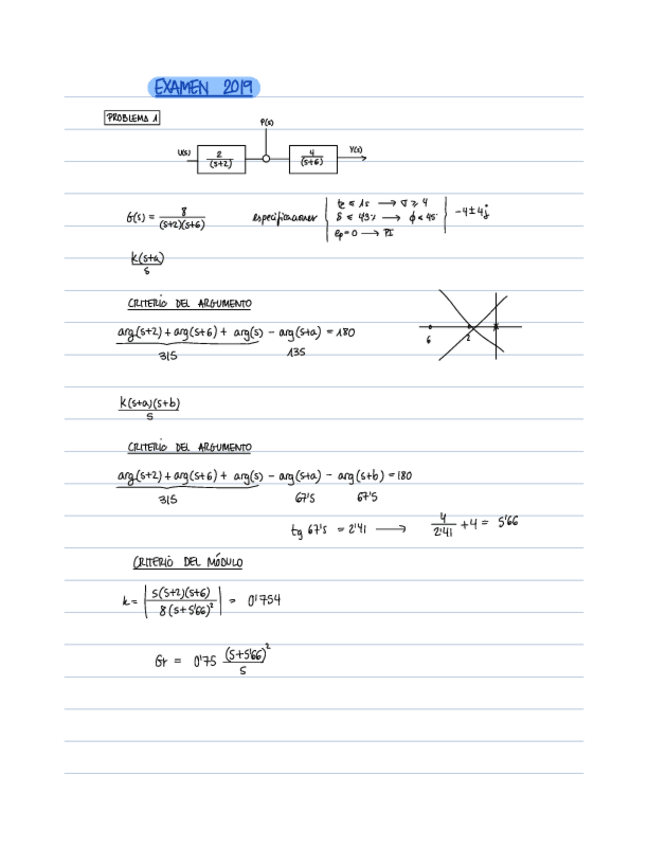 EXAMEN 2019
PROBLEMA 1
P(s)
U(s) 2/(s+2) 4/(s+6) Y(s)
G(s) = 8/((s+2)(s+6)) especificaciones te ≤ 1s → σ ≥ 4
δ ≤ 4'3% → φ < 45°
ep=0 → PI
-4±4j
k(s+a)/s
CRITERIO DEL ARGUMENTO
arg(s+2) + arg(s+6) + arg(s) - arg(s+a) = 180
315 135
6 2
k(s+a)(s+b)/s
CRITERIO DEL ARGUMENTO
arg(s+2) + arg(s+6) + arg(s) - arg(s+a) - arg(s+b) = 180
315 67'5 67'5
tg 67'5 = 2'41 → 4/2'41 + 4 = 5'66
CRITERIO DEL MÓDULO
k = |s(s+2)(s+6)/8(s+5'66)²| = 0'754
Gr = 0'75 (s+5'66)²/s